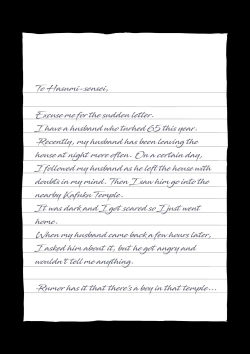 To Hasumi-sensei,
Excuse me for the sudden letter.
I have a husband who turned 65 this year.
Recently, my husband has been leaving the
house at night more often. On a certain day,
I followed my husband as he left the house with
doubts in my mind. Then I saw him go into the
nearby Kafuku Temple.
It was dark and I got scared so I just went
home.
When my husband came back a few hours later,
I asked him about it, but he got angry and
wouldn't tell me anything.
Rumor has it that there's a boy in that temple...